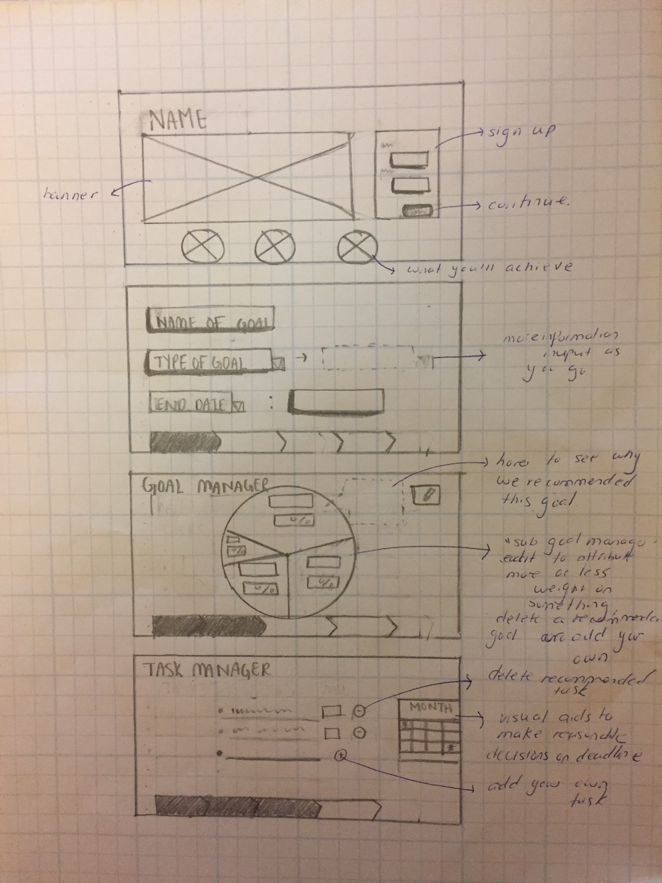 NAME
sign up
banner
continue.
what you'll achieve
NAME OF GOAL
TYPE OF GOAL
more information
input as
you go
END DATE :
hover to see why
we recommended
this goal
GOAL MANAGER
%
%
%
%
*sub goal manage
edit to attribute
more or less
weight on
something
delete a recommended
goal and add your
own
TASK MANAGER
delete recommended
task
MONTH
visual aids to
make reasonable
decisions on deadline
add your own
task